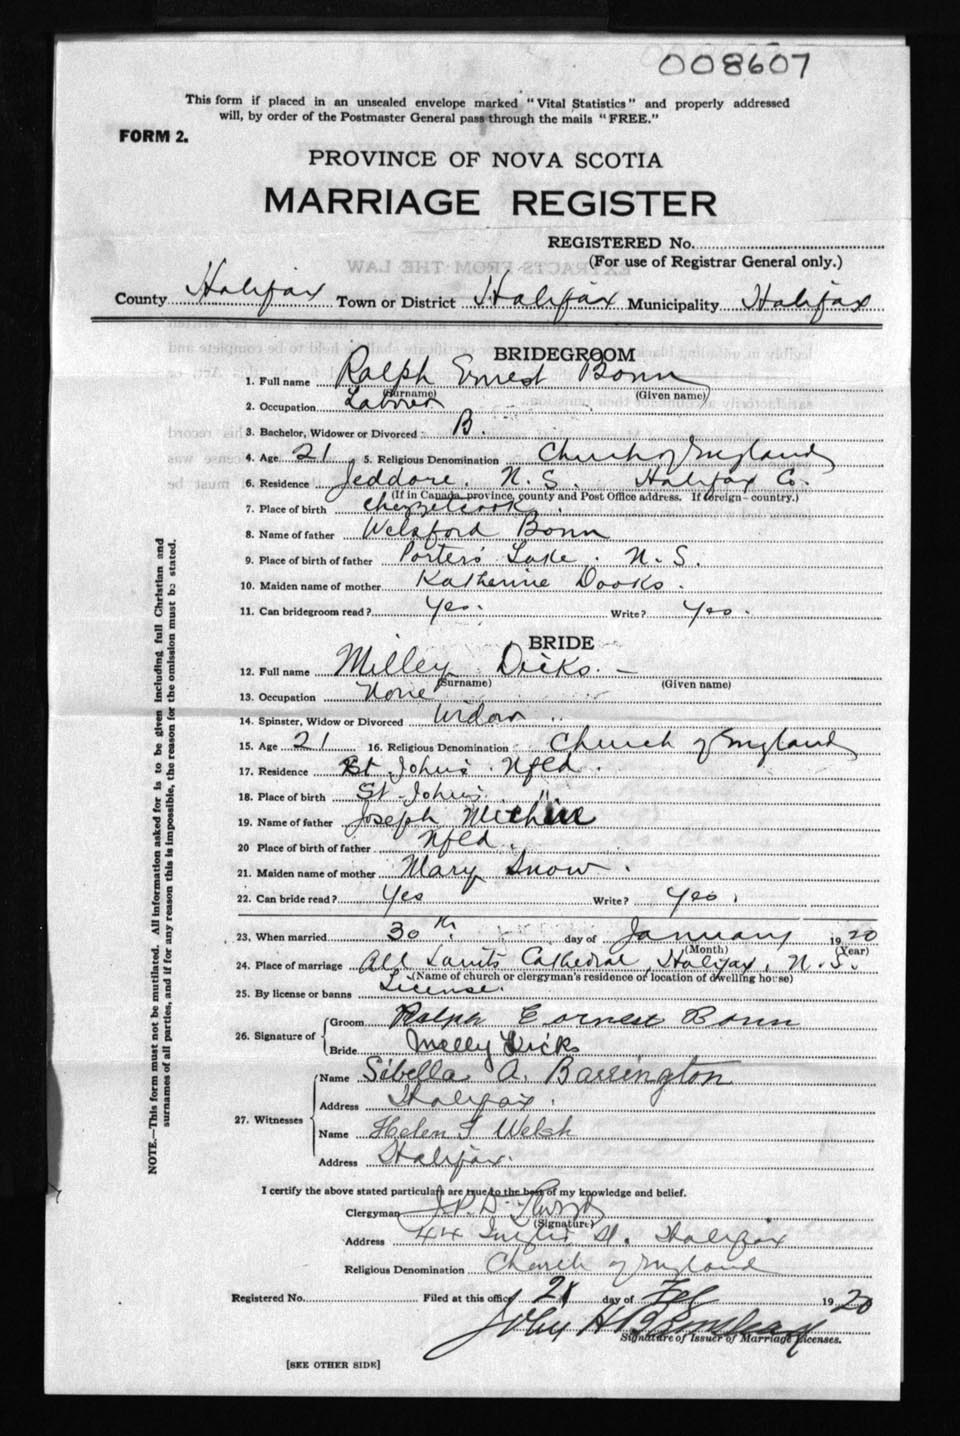 008607
This form if placed in an unsealed envelope marked "Vital Statistics" and properly addressed
will, by order of the Postmaster General pass through the mails "FREE."
FORM 2.
PROVINCE OF NOVA SCOTIA
MARRIAGE REGISTER
REGISTERED No.
(For use of Registrar General only.)
EXTRACTS FROM THE LAW
County Halifax Town or District Halifax Municipality Halifax
BRIDEGROOM
1. Full name Ralph Ernest Bonn
(Surname) (Given name)
2. Occupation Laborer
3. Bachelor, Widower or Divorced B.
4. Age 21 5. Religious Denomination Church of England
6. Residence Jeddore. N. S. Halifax Co.
(If in Canada, province, county and Post Office address. If foreign—country.)
7. Place of birth Chezzetcook.
8. Name of father Welsford Bonn
9. Place of birth of father Porters Lake. N. S.
10. Maiden name of mother Katherine Dooks.
11. Can bridegroom read? Yes. Write? Yes.
BRIDE
12. Full name Milley Dicks. —
(Surname) (Given name)
13. Occupation None
14. Spinster, Widow or Divorced Widow
15. Age 21 16. Religious Denomination Church of England
17. Residence St John's. Nfld.
18. Place of birth St. John's. "
19. Name of father Joseph
20 Place of birth of father Nfld.
21. Maiden name of mother Mary Snow.
22. Can bride read? Yes Write? Yes.
23. When married 30th day of January 1920
(Month) (Year)
24. Place of marriage All Saints Cathedral, Halifax, N. S.
(Name of church or clergyman's residence or location of dwelling house)
25. By license or banns License.
26. Signature of
Groom Ralph Eornest Bonn
Bride Melly Dicks
27. Witnesses
Name Sibella A. Barrington
Address Halifax.
Name Helen I Welsh
Address Halifax.
I certify the above stated particulars are true to the best of my knowledge and belief.
Clergyman J. P. D.
(Signature)
Address 44 Inglis St. Halifax
Religious Denomination Church of England
Registered No. Filed at this office day of Feb 1920
John H
Signature of Issuer of Marriage Licenses.
[SEE OTHER SIDE]
NOTE.—This form must not be mutilated. All information asked for is to be given including full Christian and
surnames of all parties, and if for any reason this is impossible, the reason for the omission must be stated.